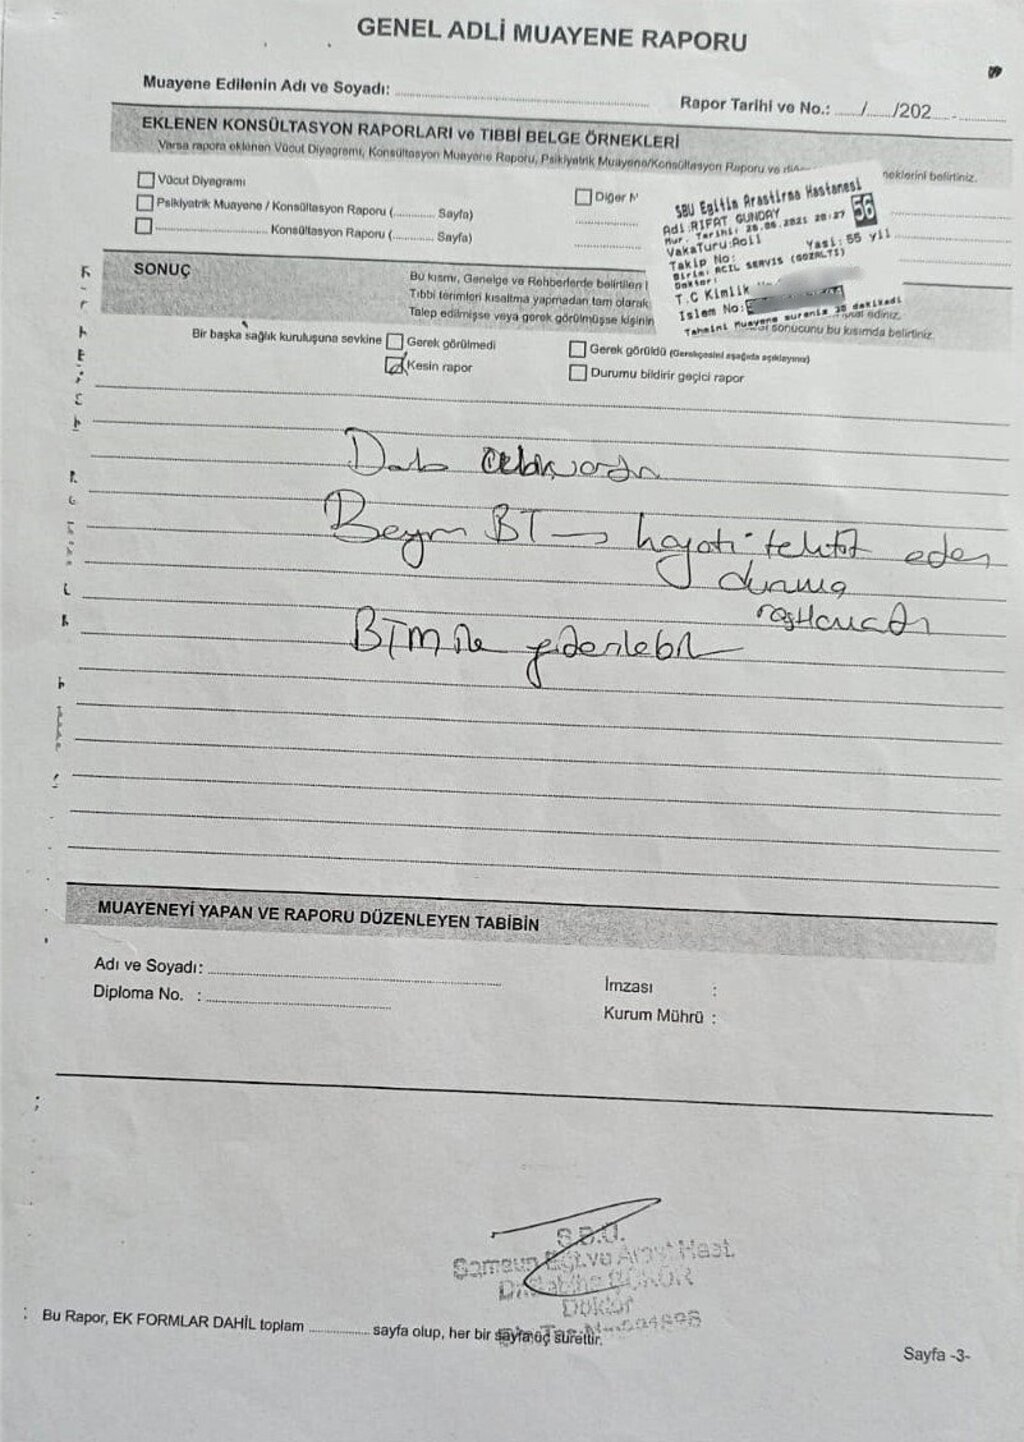 GENEL ADLİ MUAYENE RAPORU
Muayene Edilenin Adı ve Soyadı:
Rapor Tarihi ve No.: ..../..../202....-............
EKLENEN KONSÜLTASYON RAPORLARI ve TIBBİ BELGE ÖRNEKLERİ
Varsa rapora eklenen Vücut Diyagramı, Konsültasyon Muayene Raporu, Psikiyatrik Muayene/Konsültasyon Raporu ve neklerini belirtiniz.
Vücut Diyagramı
Psikiyatrik Muayene / Konsültasyon Raporu (............ Sayfa)
Diğer
Konsültasyon Raporu (............ Sayfa)
SBU Egitim Arastirma Hastanesi
Adi :RIFAT GUNDAY
56
VakaTuru:Acil
Yasi: 55 yil
Takip No:
Birim: ACIL SERVIS (GOZALTI)
Doktor:
T.C Kimlik
Islem No:
Tahmini Muayene sureniz dakikadi
SONUÇ
Bu kısmı, Genelge ve Rehberlerde belirtilen
Tıbbi terimleri kısaltma yapmadan tam olarak
Talep edilmişse veya gerek görülmüşse kişinin
sonucunu bu kısımda belirtiniz.
Bir başka sağlık kuruluşuna sevkine
Gerek görülmedi
Gerek görüldü (Gerekçesini aşağıda açıklayınız)
Kesin rapor
Durumu bildirir geçici rapor
Beyin BT → hayati tehdit eden
duruma
rastlanmadı
BTM ile giderilebilir
MUAYENEYİ YAPAN VE RAPORU DÜZENLEYEN TABİBİN
Adı ve Soyadı:
Diploma No. :
İmzası :
Kurum Mührü :
S.B.Ü.
Samsun Eğt.ve Araşt.Hast.
Doktor
Bu Rapor, EK FORMLAR DAHİL toplam ............ sayfa olup, her bir sayfa üç surettir.
Sayfa -3-